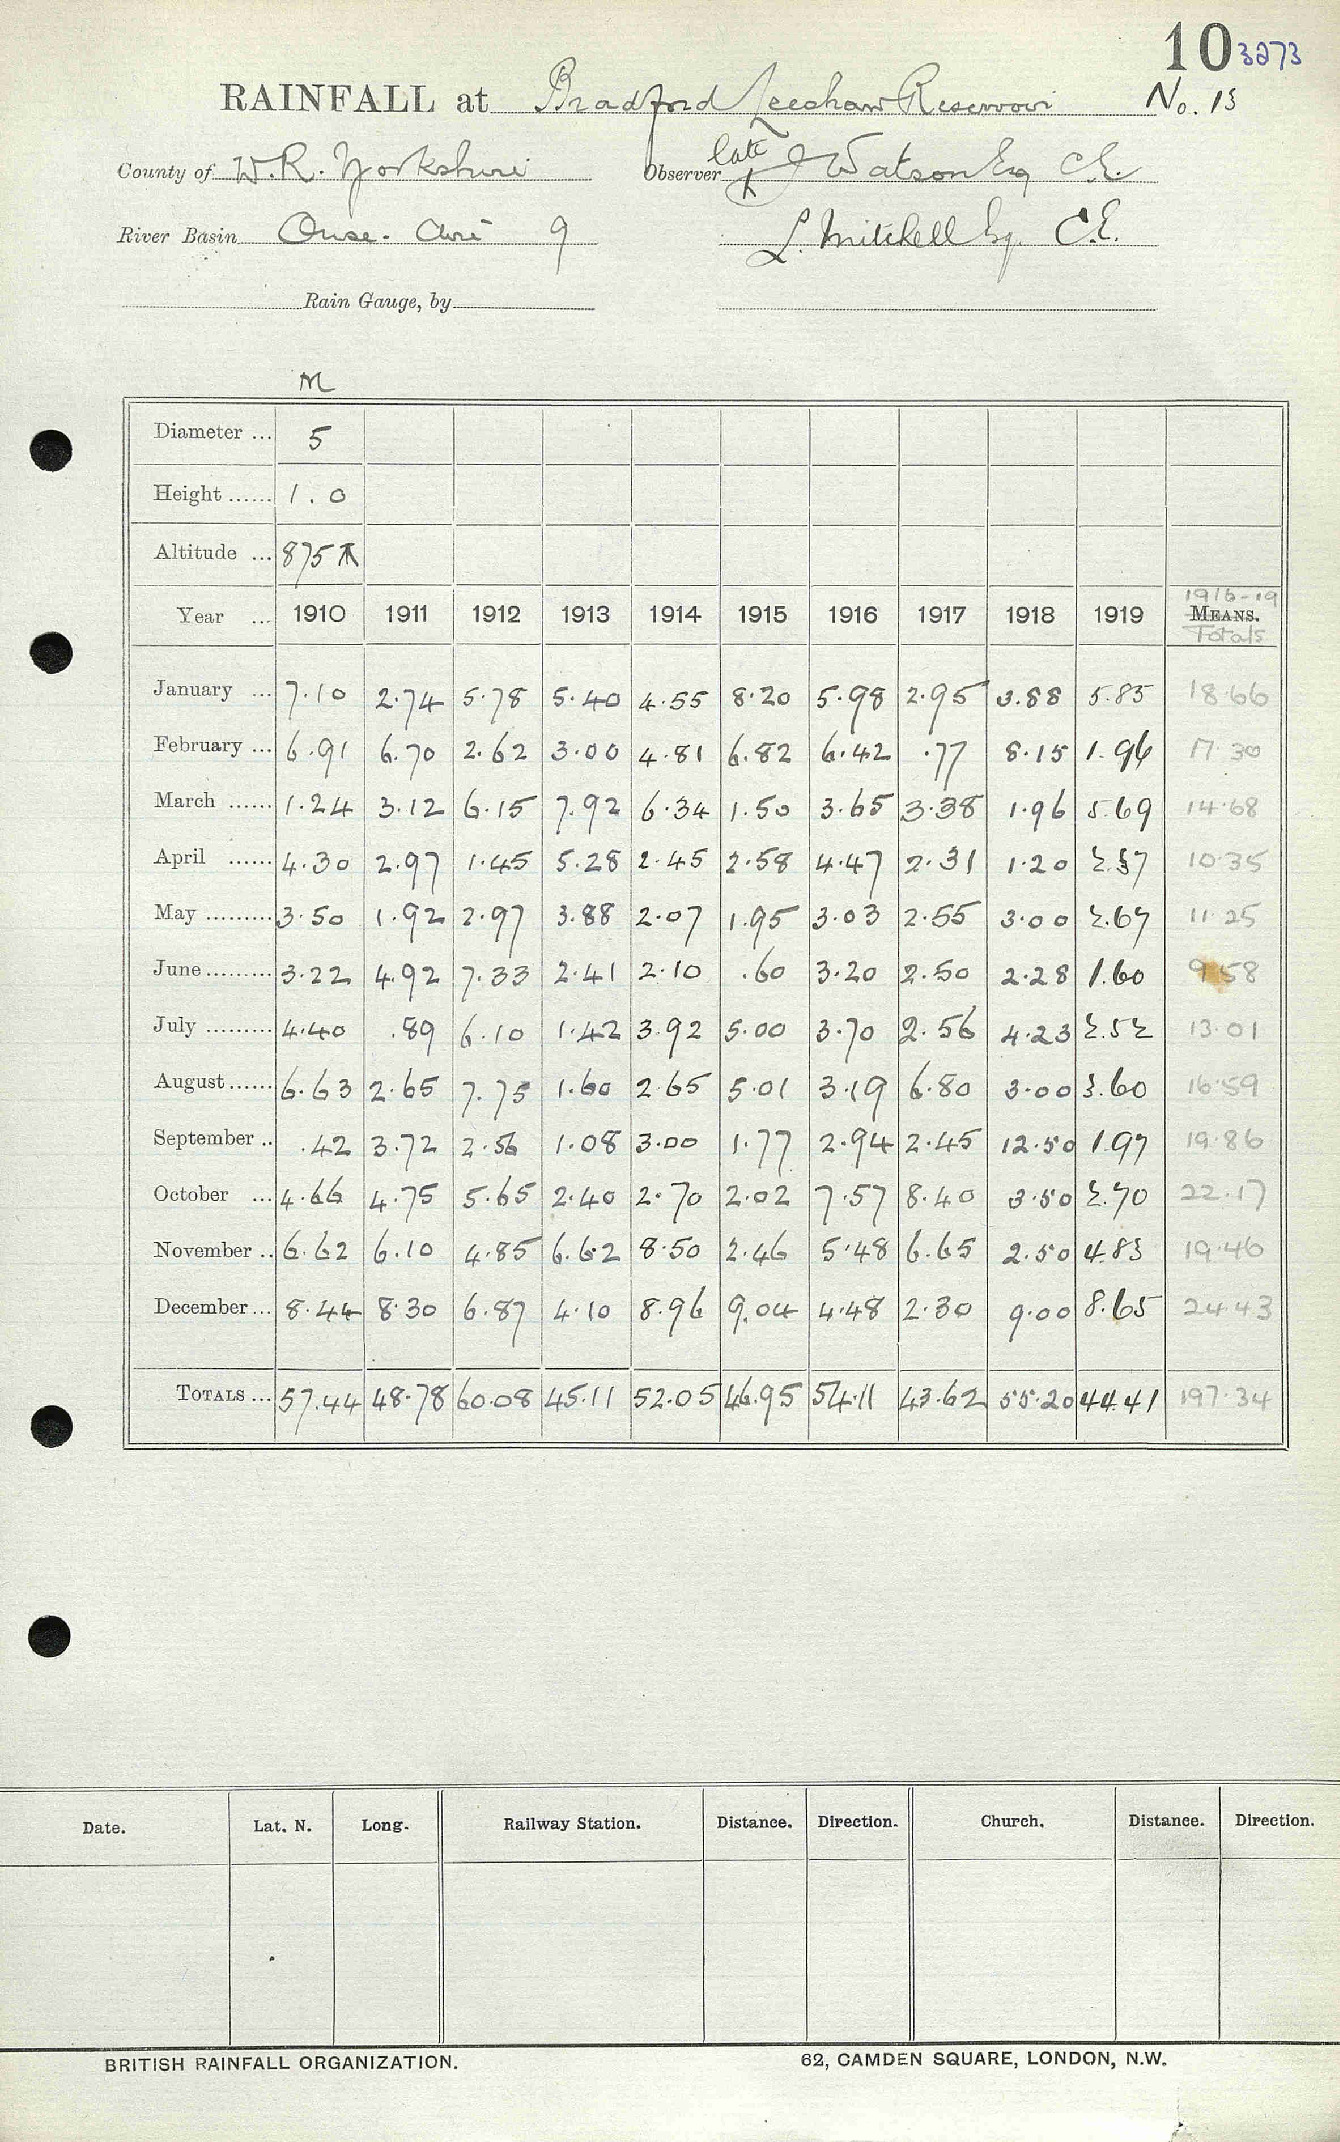 10 3273
RAINFALL at Bradford Leeshaw Reservoir No. 13
County of W.R. Yorkshire Observer late J Watson Esq C.E.
River Basin Ouse. Aire 9 L. Mitchell Esq. C.E.
Rain Gauge, by
M
Diameter ... 5
Height ...... 1.0
Altitude ... 875
1916-19
Year ... 1910 1911 1912 1913 1914 1915 1916 1917 1918 1919 MEANS.
Totals
January ... 7.10 2.74 5.78 5.40 4.55 8.20 5.98 2.95 3.88 5.85 18.66
February ... 6.91 6.70 2.62 3.00 4.81 6.82 6.42 .77 8.15 1.96 17.30
March ...... 1.24 3.12 6.15 7.92 6.34 1.50 3.65 3.38 1.96 5.69 14.68
April ...... 4.30 2.97 1.45 5.28 2.45 2.58 4.47 2.31 1.20 2.37 10.35
May ......... 3.50 1.92 2.97 3.88 2.07 1.95 3.03 2.55 3.00 2.67 11.25
June ......... 3.22 4.92 7.33 2.41 2.10 .60 3.20 2.50 2.28 1.60 9.58
July ......... 4.40 .89 6.10 1.42 3.92 5.00 3.70 2.56 4.23 2.52 13.01
August ...... 6.63 2.65 7.75 1.60 2.65 5.01 3.19 6.80 3.00 3.60 16.59
September .. .42 3.72 2.56 1.08 3.00 1.77 2.94 2.45 12.50 1.97 19.86
October ... 4.66 4.75 5.65 2.40 2.70 2.02 7.57 8.40 3.50 2.70 22.17
November .. 6.62 6.10 4.85 6.62 8.50 2.46 5.48 6.65 2.50 4.83 19.46
December ... 8.44 8.30 6.87 4.10 8.96 9.04 4.48 2.30 9.00 8.65 24.43
TOTALS ... 57.44 48.78 60.08 45.11 52.05 46.95 54.11 43.62 55.20 44.41 197.34
Date. Lat. N. Long. Railway Station. Distance. Direction. Church. Distance. Direction.
BRITISH RAINFALL ORGANIZATION. 62, CAMDEN SQUARE, LONDON, N.W.